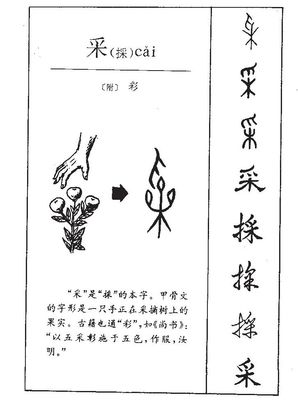 采(採)cǎi
〔附〕 彩
“采”是“採”的本字。甲骨文
的字形是一只手正在采摘树上的
果实。古籍也通“彩”,如《尚书》:
“以五采彰施于五色,作服,汝
明。”
采
採
採
採
采